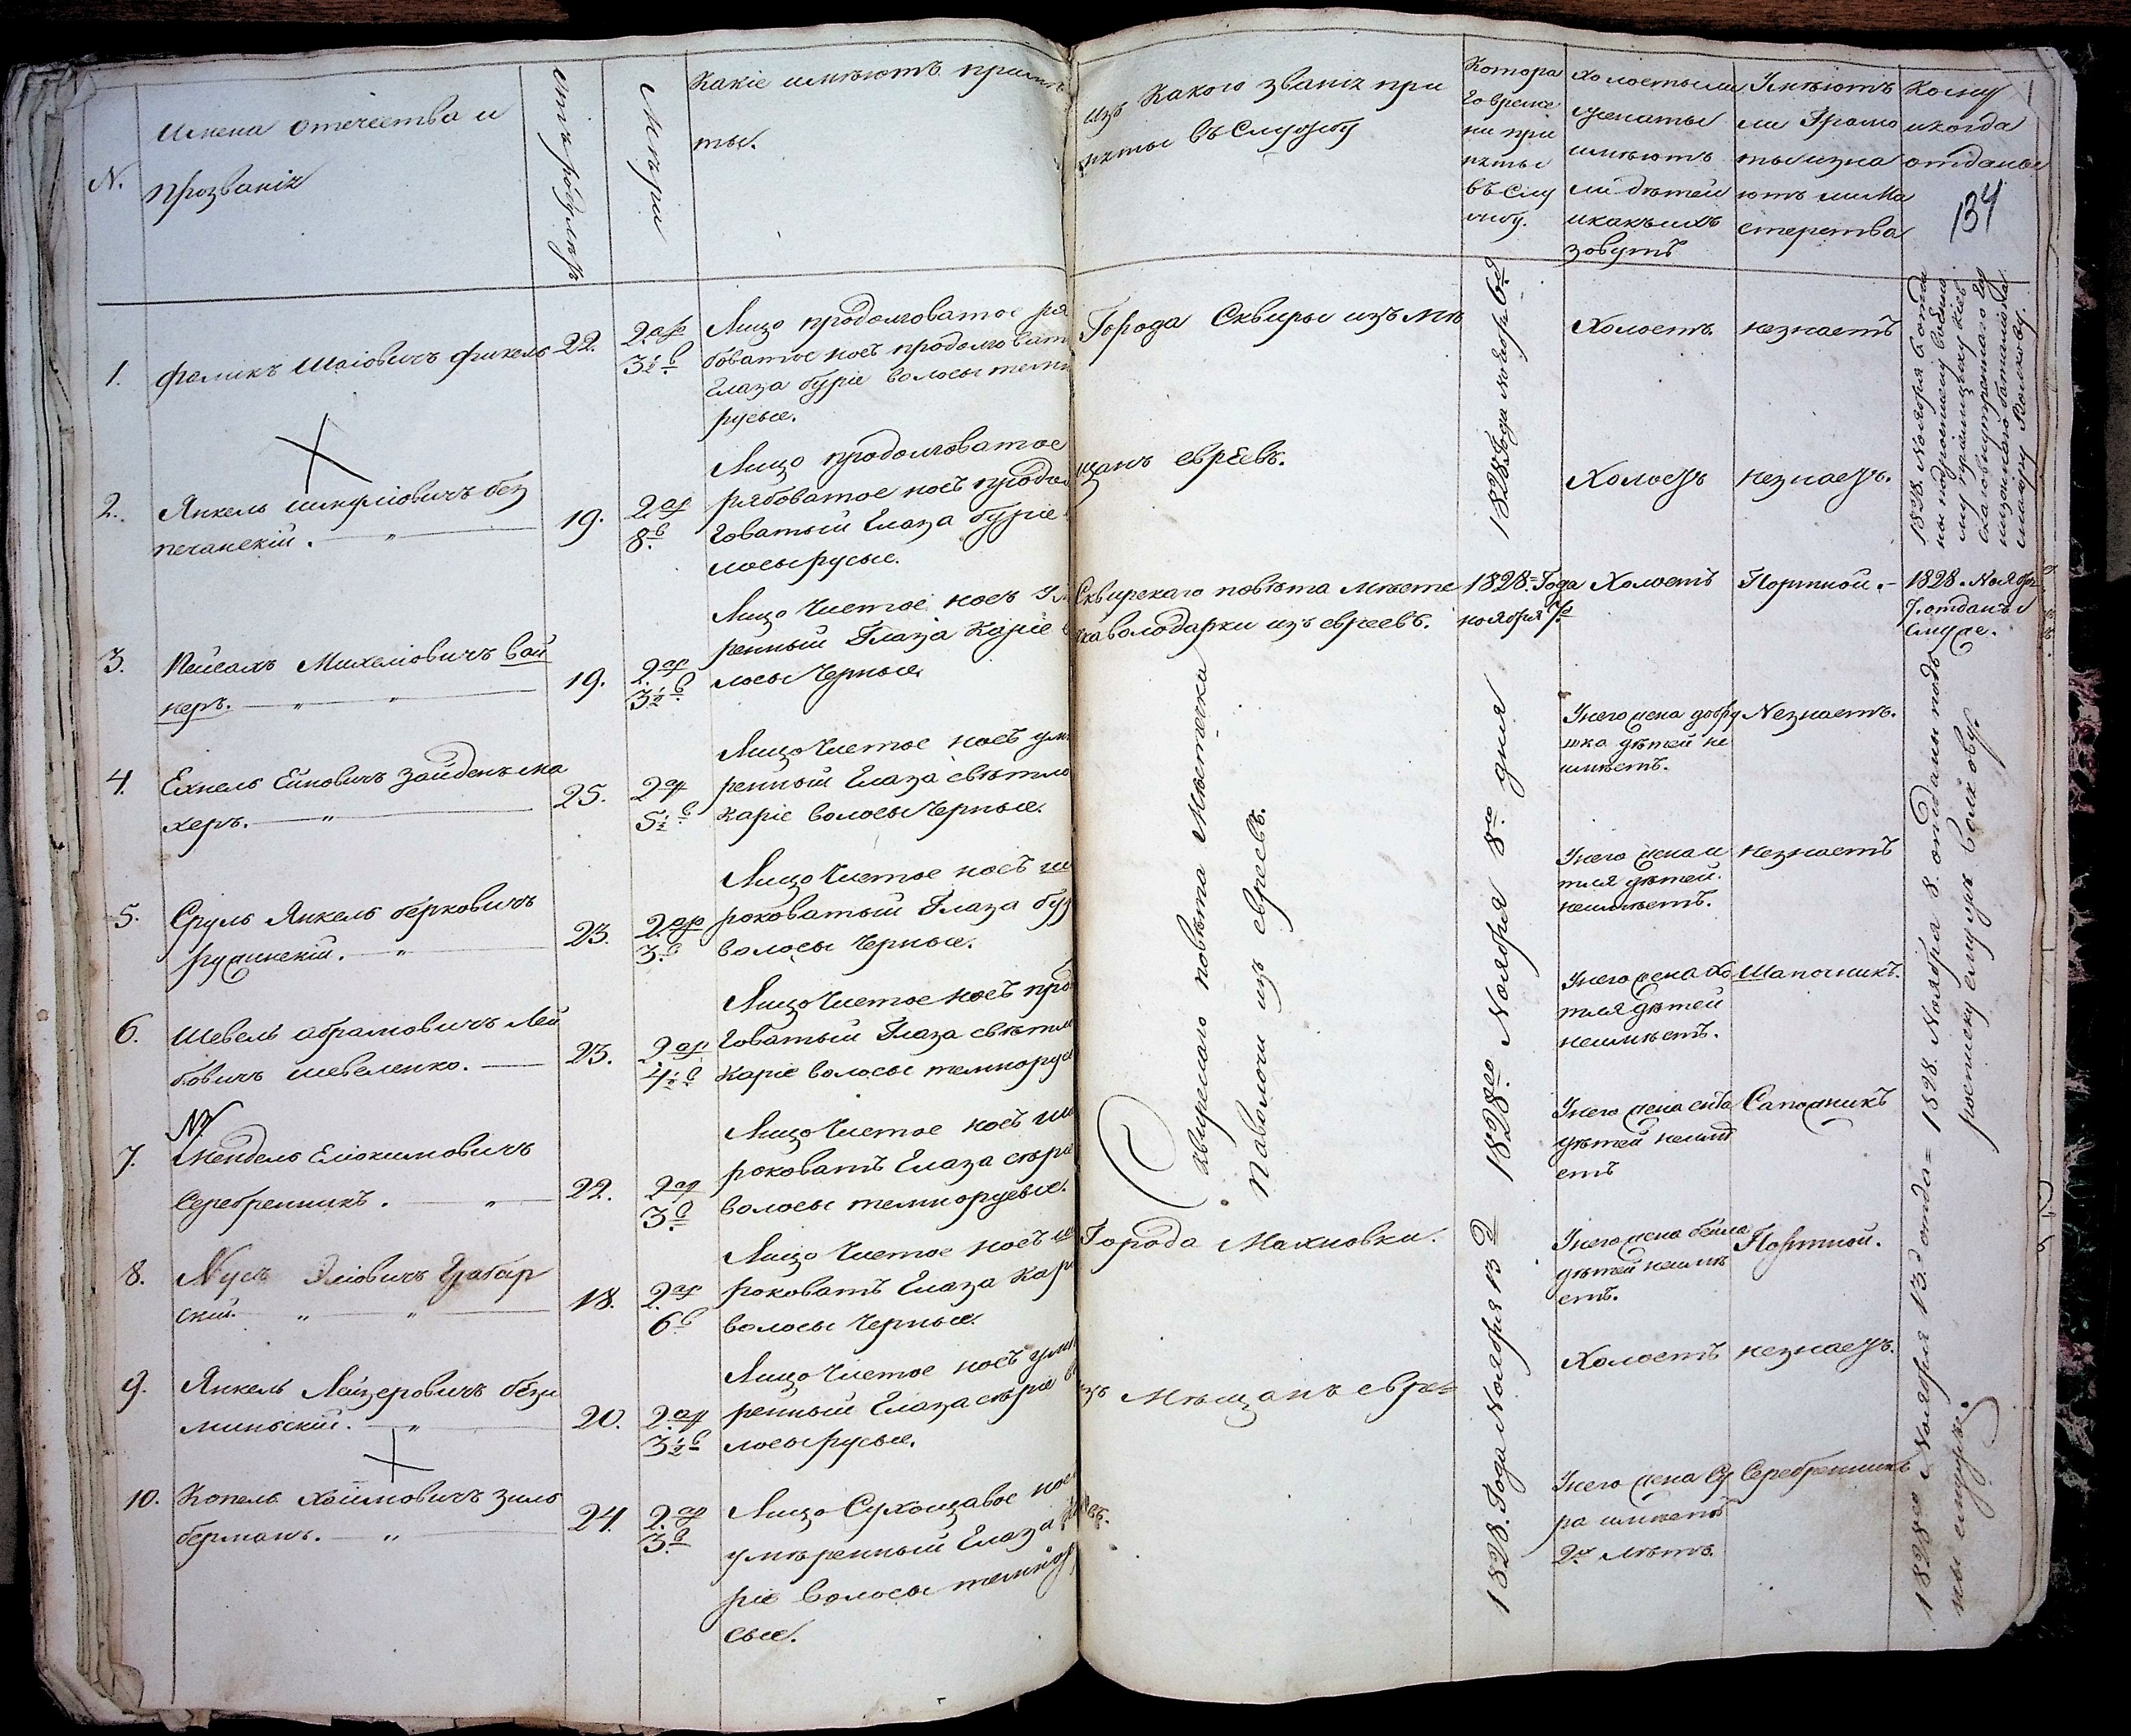 N.
Имена отечества и
прозванія
отъ роду лѣтъ
Мѣра
Какіе имѣютъ примѣ
ты.
изъ Какого званія при
няты въ Службу
Котора
го време
ни при
няты
въ Слу
жбу.
Холостыли
женаты
имѣютъ
ли дѣтей
и какъ ихъ
зовутъ
Имѣютъ
ли Грамо
ты и зна
ютъ ли Ма
стерства
Кому
и когда
отданы
134
1.
Фроимъ Шаіовичъ
22.
2 ар
3½ в
Лицо продолговатое ря
боватое носъ продолговат
Глаза буріе волосы темно
русые.
Города Сквиры изъ мѣ
1828 Года ноября 6 д
Холостъ
незнаетъ
1828. Ноября 6 отда
ны
2.
Янкель
печанскій.
19.
2 ар
8 в
Лицо продолговатое
рябоватое носъ продол
говатый Глаза буріе
лосы русые.
щанъ евреевъ.
Холостъ
незнаетъ.
3.
Пейсахъ Михелювичъ вай
неръ.
19.
2 ар
3½ в
Лицо Чистое носъ Ум
ренный Глаза Каріе в
лосы Черные.
Сквирскаго повѣта Мѣсте
чка володарки изъ евреевъ.
1828 Года
ноября 7 д
Холостъ
Портной.
1828. Ноября
7. отданъ
4.
Ехіель Ейновичъ Зайденъ ма
херъ.
25.
2 ар
5½ в
Лицо Чистое носъ умѣ
ренный Глаза свѣтло
каріе волосы Черные.
Сквирскаго повѣта Мѣстечка
Паволочи изъ евреевъ.
1828го Ноября 8го дня
Унего жена добру
шка дѣтей не
имѣетъ.
Незнаетъ.
1828. Ноября 8. отданы подъ
росписку ему жъ Волкову.
5.
Сруль Янкель берковичъ
ружинскій.
23.
2 ар
3 в
Лицо Чистое носъ ши
роковатый Глаза бур
волосы Черные.
Унего жена и
тля дѣтей
неимѣетъ.
незнаетъ
6.
Шевель абрамовичъ Лей
бовичъ шевеленко.
23.
2 ар
4½ в
Лицо Чистое носъ прод
говатый Глаза свѣтло
каріе волосы темнорус
Унего жена Хо
тля дѣтей
неимѣетъ.
Шапочникъ.
7.
Мендель Еліокимовичъ
Серебренникъ.
22.
2 ар
3 в
Лицо Чистое носъ ши
роковатъ Глаза сѣріе
волосы темнорусые.
Унего жена сита
дѣтей неимѣ
етъ
Сапожникъ
8.
Нусъ Эліовичъ Грабар
скій.
18.
2 ар
6 в
Лицо Чистое носъ ши
роковатъ Глаза Кар
волосы Черные.
Города Махновки.
1828. Года Ноября 13 д
Унего жена бейла
дѣтей неимѣ
етъ.
Портной.
1828го Ноября 13 д отда=
ны ему жъ.
9.
Янкель Лейзеровичъ бези
минскій.
20.
2 ар
3½ в
Лицо Чистое носъ умѣ
ренный Глаза сѣріе во
лосы русые.
изъ Мѣщанъ евре=
Холостъ
незнаетъ.
10.
Копель Хаимовичъ Зиль
берманъ.
24.
2 ар
3 в
Лицо Сухощавое нос
умѣренный Глаза
ріе волосы темнору
сые.
евъ.
Унего жена Су
ра имѣетъ
2 лѣтъ.
Серебренникъ